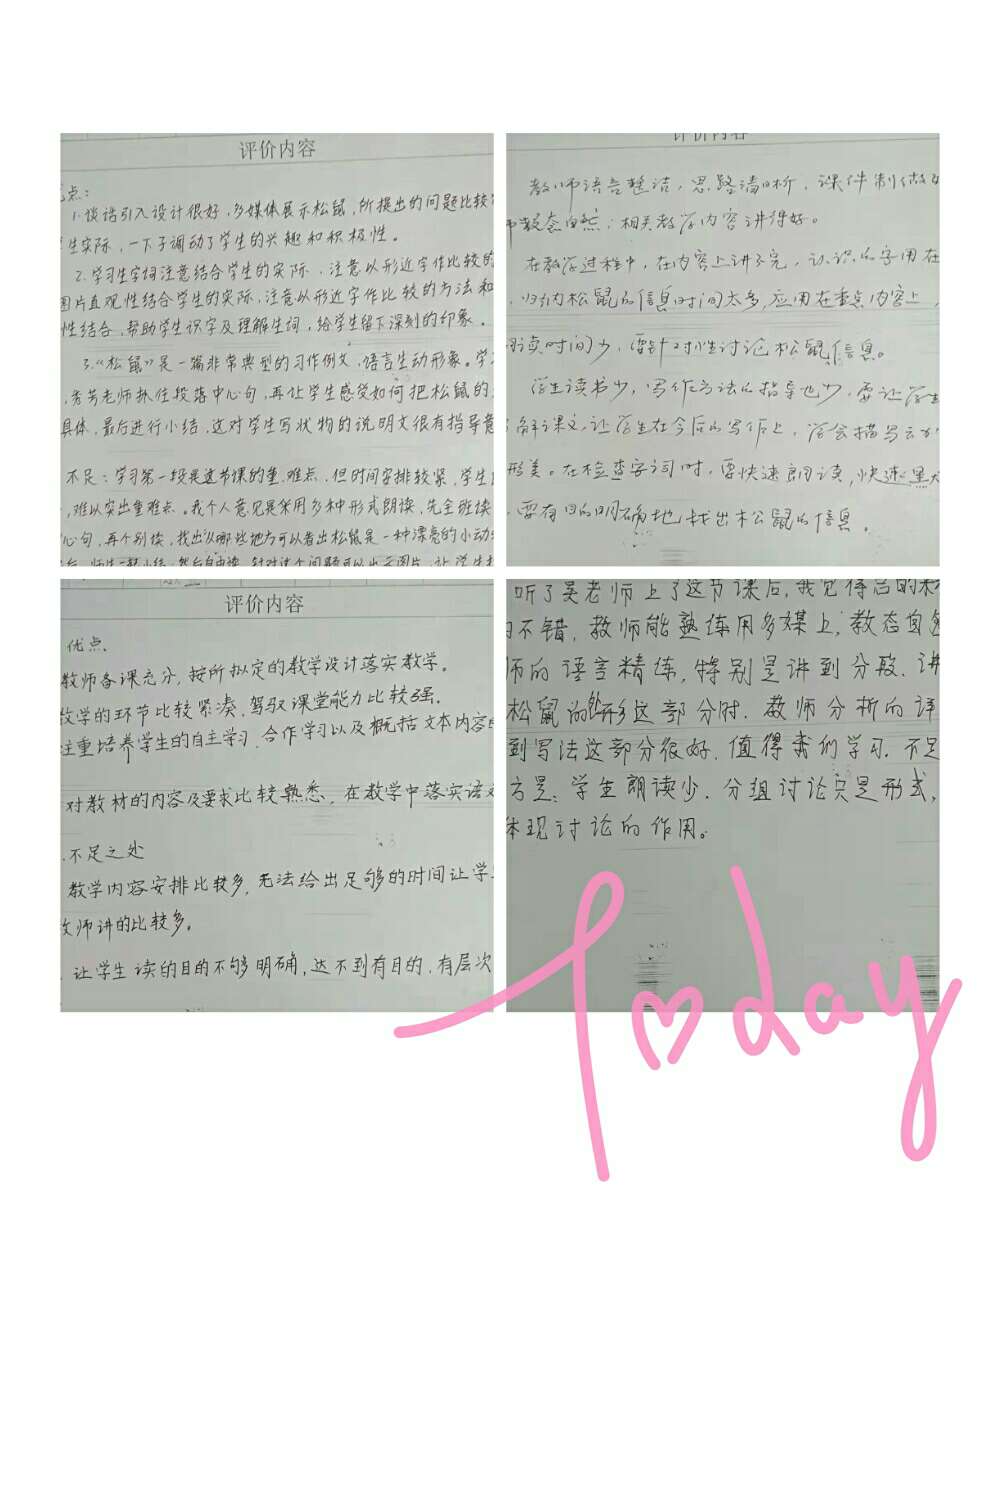 评价内容
点：
1.谈话引入设计很好，多媒体展示松鼠，所提出的问题比较
生实际，一下子调动了学生的兴趣和积极性。
2.学习生字词注意结合学生的实际，注意以形近字作比较的
图片直观性结合学生的实际，注意以形近字作比较的方法和
性结合，帮助学生识字及理解生词，给学生留下深刻的印象。
3.《松鼠》是一篇非常典型的习作例文，语言生动形象。学
秀芳老师抓住段落中心句，再让学生感受如何把松鼠的
具体，最后进行小结，这对学生写状物的说明文很有指导意
不足：学习第一段是这节课的重、难点，但时间安排较紧，学生
，难以突出重难点。我个人意见是采用多种形式朗读，先全班读
心句，再个别读，找出从哪些地方可以看出松鼠是一种漂亮的小动
后，师生一起小结，然后自由读，针对这个问题可以出示图片，让学生
评价内容
教师语言整洁，思路清晰，课件制做
教态自然，相关教学内容讲得好。
在教学过程中，在内容上讲不完，认识的字用在
，归纳松鼠的信息时间太多，应用在重点内容上，
朗读时间少，要针对性讨论松鼠信息。
学生读书少，写作方法的指导也少，要让学生
了解课文，让学生在今后的写作上，学会描写
形美。在检查字词时，要快速朗读，快速
要有目的明确地找出松鼠的信息。
评价内容
优点.
教师备课充分，按所拟定的教学设计落实教学。
教学的环节比较紧凑，驾驭课堂能力比较强.
注重培养学生的自主学习、合作学习以及概括文本内容
对教材的内容及要求比较熟悉，在教学中落实语文
不足之处
教学内容安排比较多，无法给出足够的时间让学
教师讲的比较多。
让学生读的目的不够明确，达不到有目的，有层次
听了吴老师上了这节课后，我觉得
不错，教师能熟练用多媒上，教态自
师的语言精练，特别是讲到分段，讲
松鼠的外形这部分时，教师分析的详
到写法这部分很好，值得我们学习，不足
方是：学生朗读少，分组讨论只是形式，
体现讨论的作用。
Today